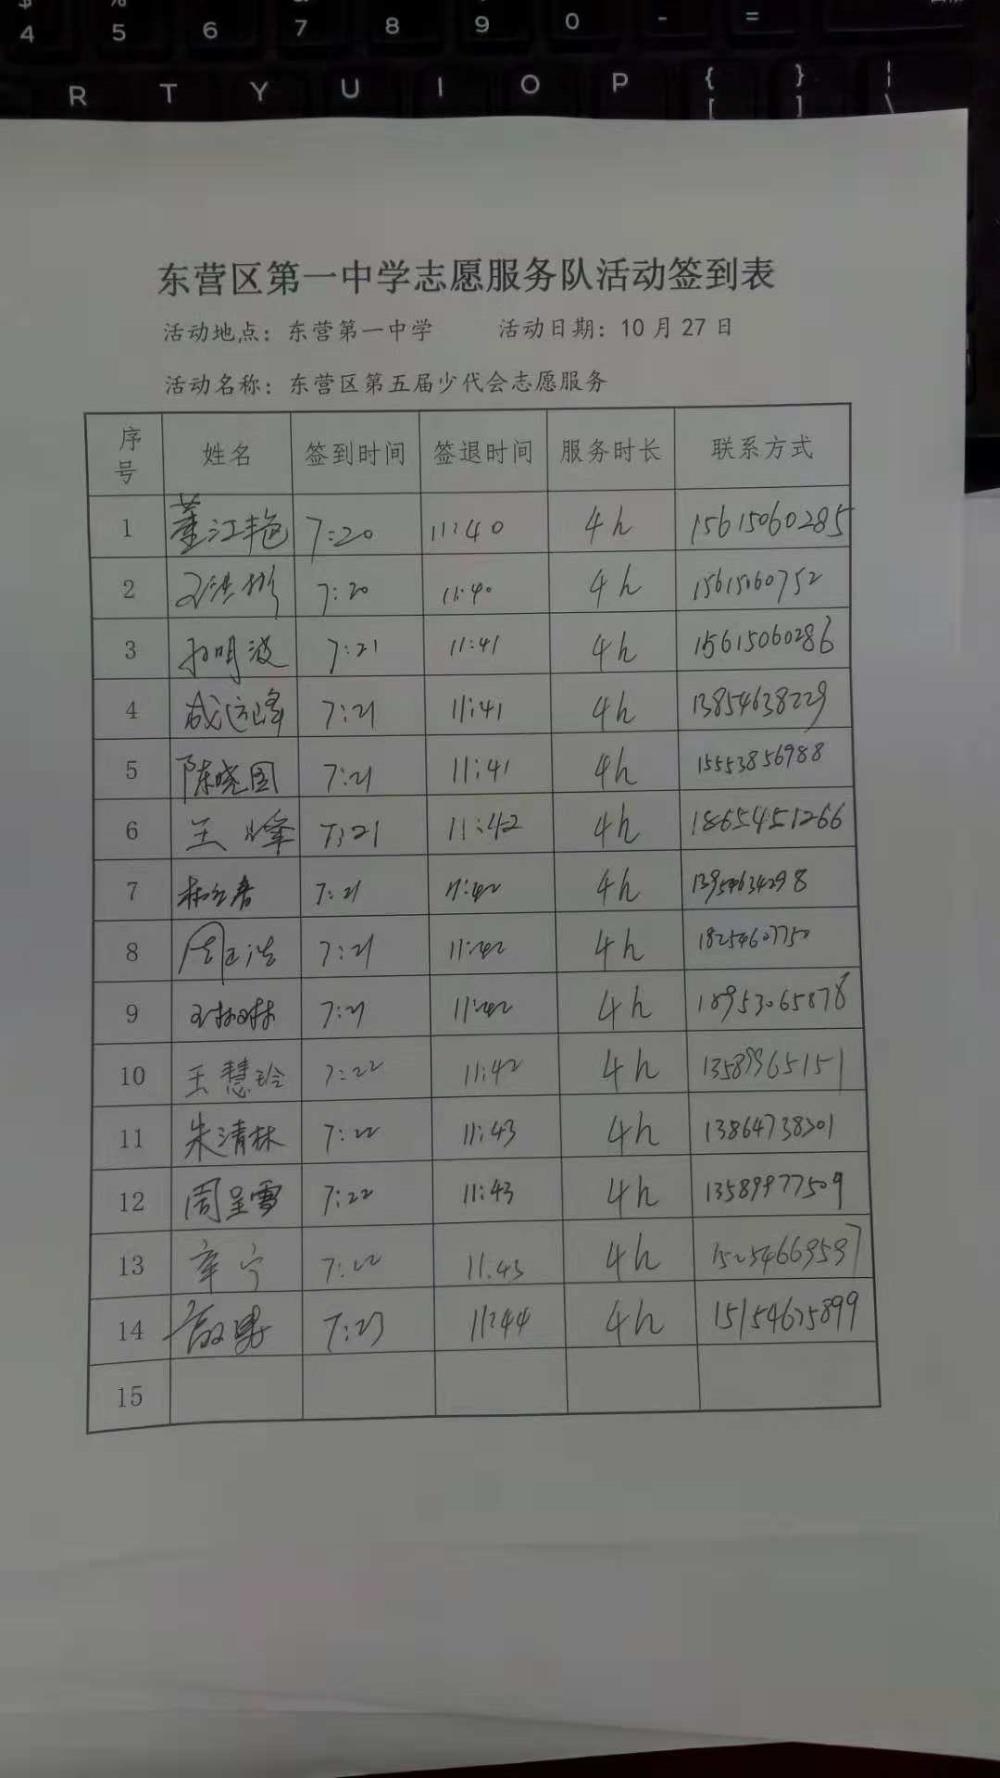 4 5 6 7 8 9 0 - =
R T Y U I O P { }
[ ] \
东营区第一中学志愿服务队活动签到表
活动地点：东营第一中学 活动日期：10月27日
活动名称：东营区第五届少代会志愿服务
序号 姓名 签到时间 签退时间 服务时长 联系方式
1 董江艳 7:20 11:40 4h 15615060285
2 7:20 11:40 4h 15615060752
3 孙明波 7:21 11:41 4h 15615060286
4 成远峰 7:21 11:41 4h 13854638229
5 陈晓国 7:21 11:41 4h 15553856988
6 王峰 7:21 11:42 4h 18654451266
7 7:21 11:42 4h
8 周正浩 7:21 11:42 4h 18254607750
9 7:21 11:42 4h 18953065878
10 王慧玲 7:22 11:42 4h 13589965151
11 朱清林 7:22 11:43 4h 13864738301
12 周呈雪 7:22 11:43 4h 13589977509
13 辛宁 7:22 11:43 4h 15254669597
14 7:23 11:44 4h 15154625899
15